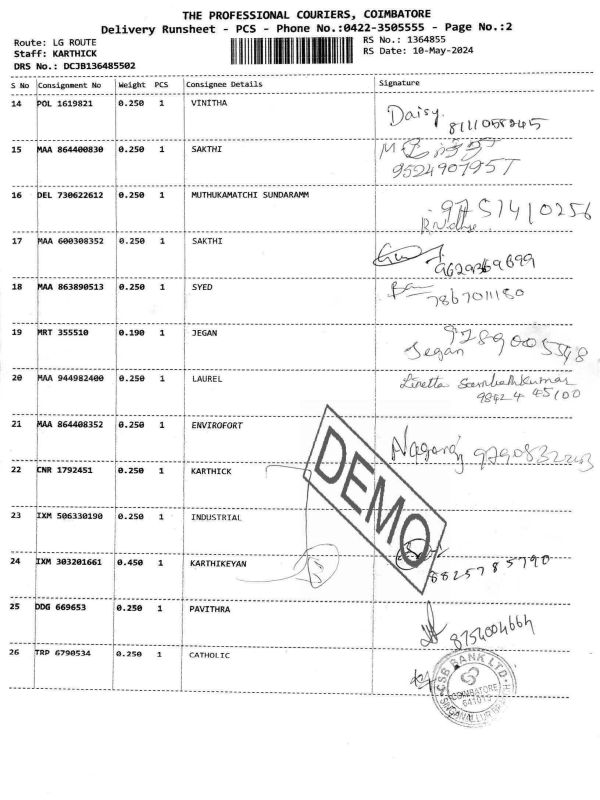 THE PROFESSIONAL COURIERS, COIMBATORE
Delivery Runsheet - PCS - Phone No.:0422-3505555 - Page No.:2
Route: LG ROUTE
Staff: KARTHICK
DRS No.: DCJB136485502
RS No.: 1364855
RS Date: 10-May-2024
S No Consignment No Weight PCS Consignee Details Signature
14 POL 1619821 0.250 1 VINITHA Daisy.
8111058245
15 MAA 864400830 0.250 1 SAKTHI
16 DEL 730622612 0.250 1 MUTHUKAMATCHI SUNDARAMM
9751410256
17 MAA 600308352 0.250 1 SAKTHI
18 MAA 863890513 0.250 1 SYED
7867011180
19 MRT 355510 0.190 1 JEGAN
9789005548
Jegan
20 MAA 944982400 0.250 1 LAUREL
98424 45100
21 MAA 864408352 0.250 1 ENVIROFORT
Nagaraj
22 CNR 1792451 0.250 1 KARTHICK
DEMO
23 IXM 506330190 0.250 1 INDUSTRIAL
24 IXM 303201661 0.450 1 KARTHIKEYAN
8825785790
25 DDG 669653 0.250 1 PAVITHRA
8754004664
26 TRP 6790534 0.250 1 CATHOLIC
CSB BANK LTD.
COIMBATORE